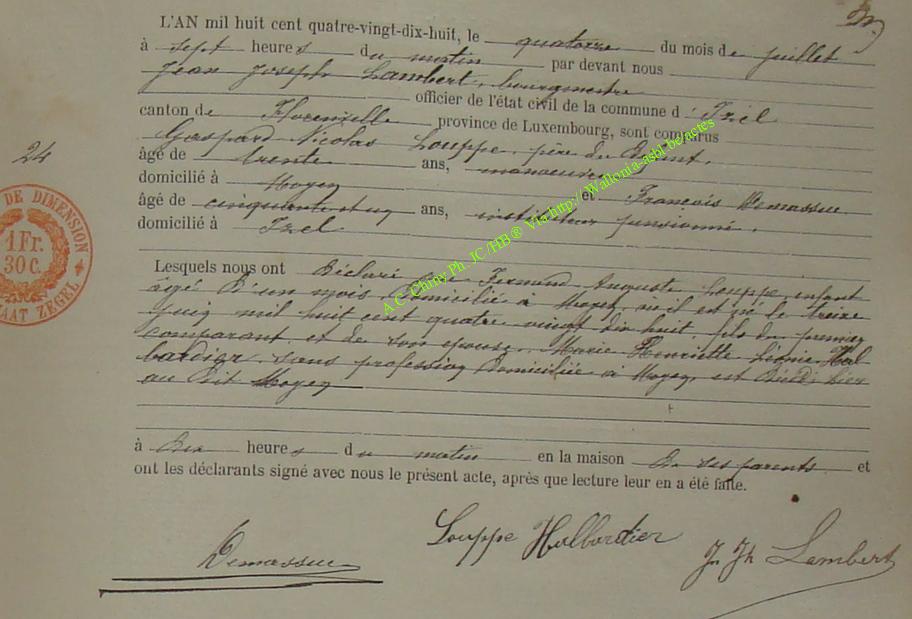 L'AN mil huit cent quatre-vingt-dix-huit, le quatorze du mois de juillet
à sept heures du matin par devant nous
Jean Joseph Lambert, bourgmestre
officier de l'état civil de la commune d'Izel
canton de Florenville province de Luxembourg, sont comparus
Gaspard Nicolas Louppe, père du défunt,
24
âgé de trente ans, manoeuvre
domicilié à Moyen et François Demassue
âgé de cinquante et un ans, instituteur pensionné,
domicilié à Izel
DE DIMENSION
1 Fr.
30 C.
ZEGEL
Lesquels nous ont déclaré que Fernand Auguste Louppe, enfant
âgé d'un mois, domicilié à Moyen, où il est né le treize
juin mil huit cent quatre vingt dix huit, fils du premier
comparant et de son épouse, Marie Henriette Léonie Hal
bardier, sans profession, domiciliée à Moyen, est décédé hier
au dit Moyen
à dix heures du matin en la maison de ses parents et
ont les déclarants signé avec nous le présent acte, après que lecture leur en a été faite.
Demassue
Louppe Halbardier
Jn Jh Lambert
A.C. Chiny Ph. JC /HB® Via http://Wallonia-asbl.be/actes